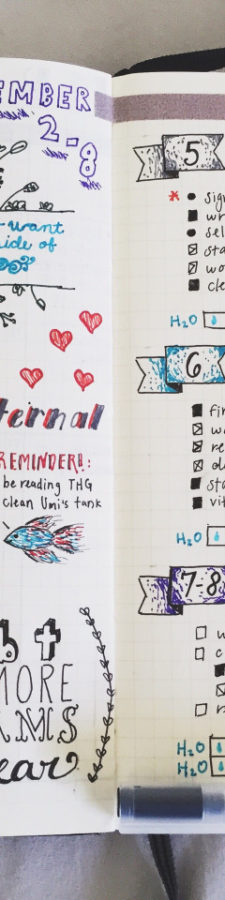 EMBER
2-8
want
ide of
ternal
REMINDER!:
be reading THG
clean Umi's tank
b t
MORE
AMS
ear
5
sig
wr
sel
sta
wo
cle
H₂O
6
fir
wa
re
sta
vit
H₂O
7-8
w
c
H₂O
H₂O